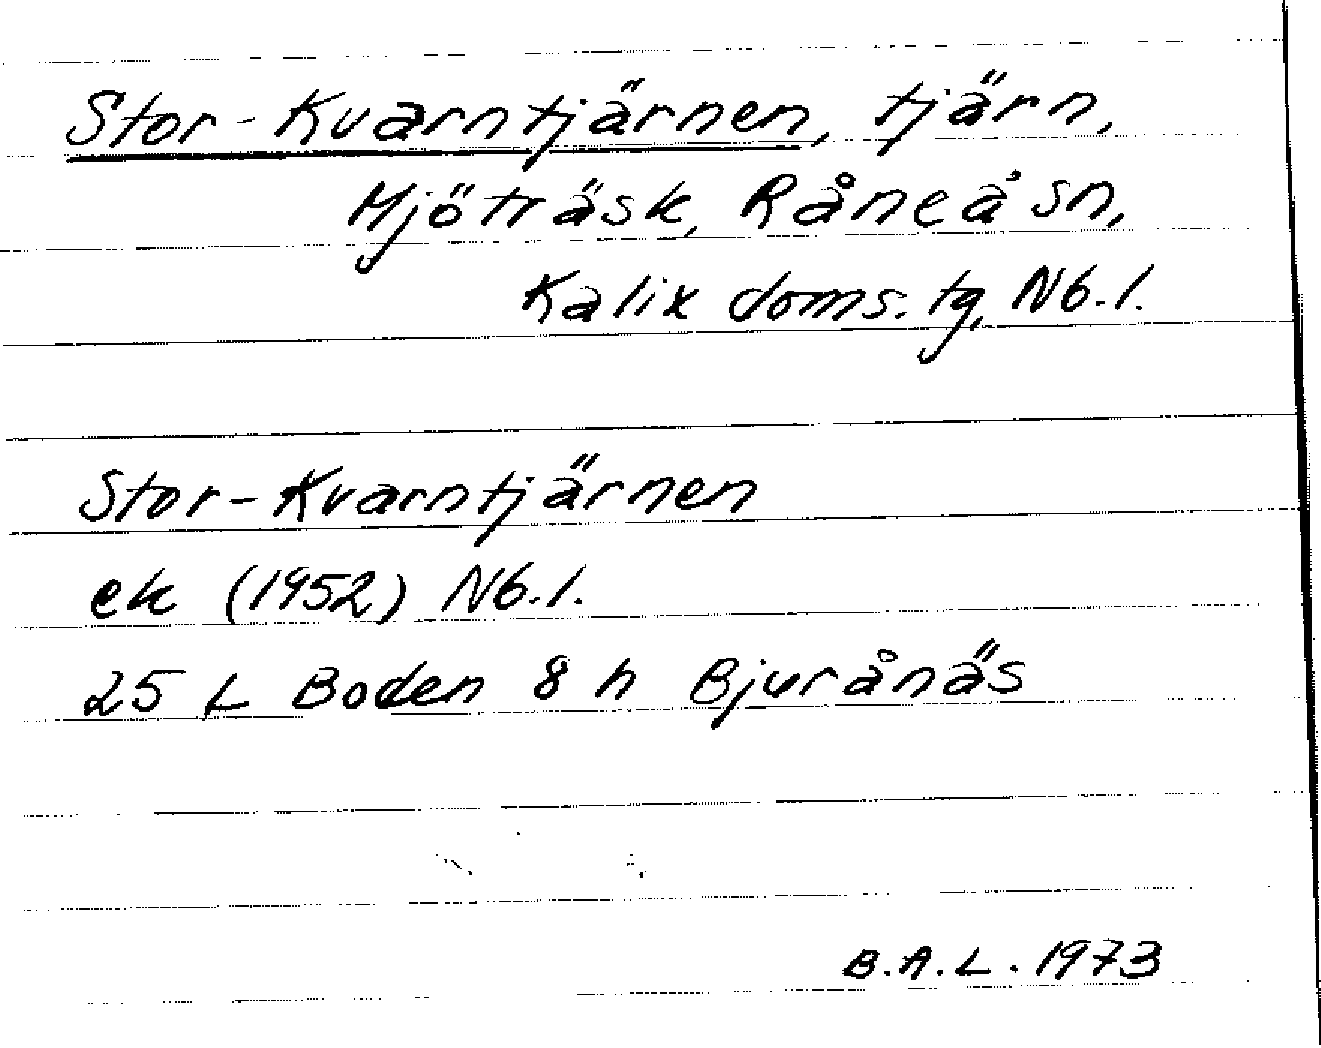 Stor-Kvarntjärnen, tjärn,
Mjöträsk, Råneå sn,
Kalix doms. tg, Nb. l.
Stor-Kvarntjärnen
ek (1952) Nb. l.
25 L Boden 8 h Bjurånäs
B.A.L. 1973